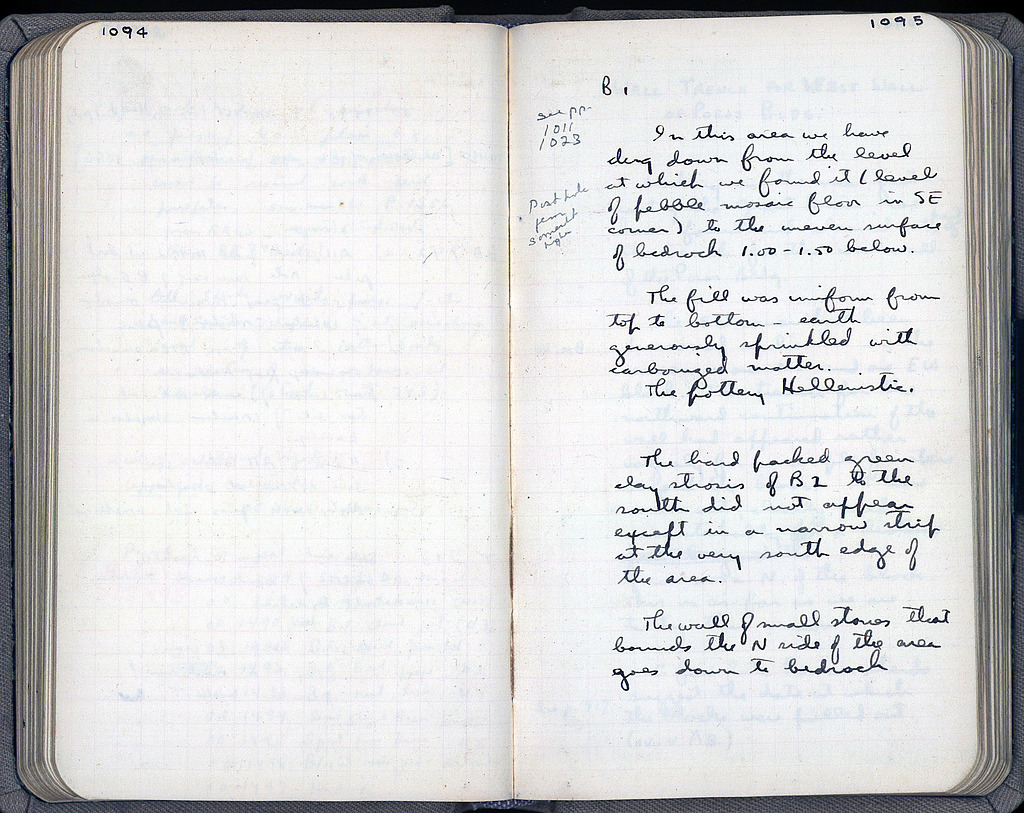 1094
1095
B 1
see pp.
1011
1023
In this area we have
dug down from the level
at which we found it (level
of pebble mosaic floor in SE
corner) to the uneven surface
of bedrock 1.00-1.50 below.
Post hole
The fill was uniform from
top to bottom - earth
generously sprinkled with
carbonized matter.
The pottery Hellenistic.
The hard packed green
clay strosis of B 2 to the
south did not appear
except in a narrow strip
at the very south edge of
the area.
The wall of small stones that
bounds the N side of the area
goes down to bedrock